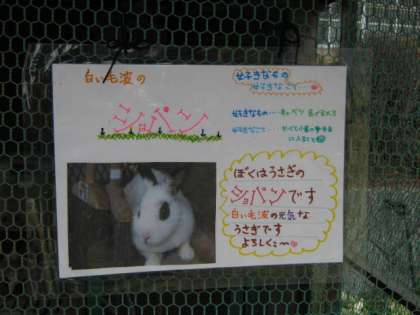 白い毛波の
ショパン
好きなもの
好きなこと…
好きなもの…
好きなこと…
ぼくはうさぎの
ショパンです
白い毛波の元気な
うさぎです
よろしくね〜